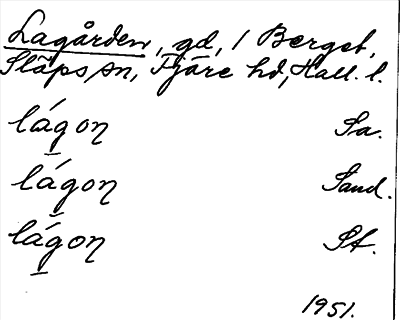 Lagården, gd, 1 Berget,
Släps sn, Fjäre hd, Hall. l.
lágon Sa.
lágon Sand.
lágon St.
1951.